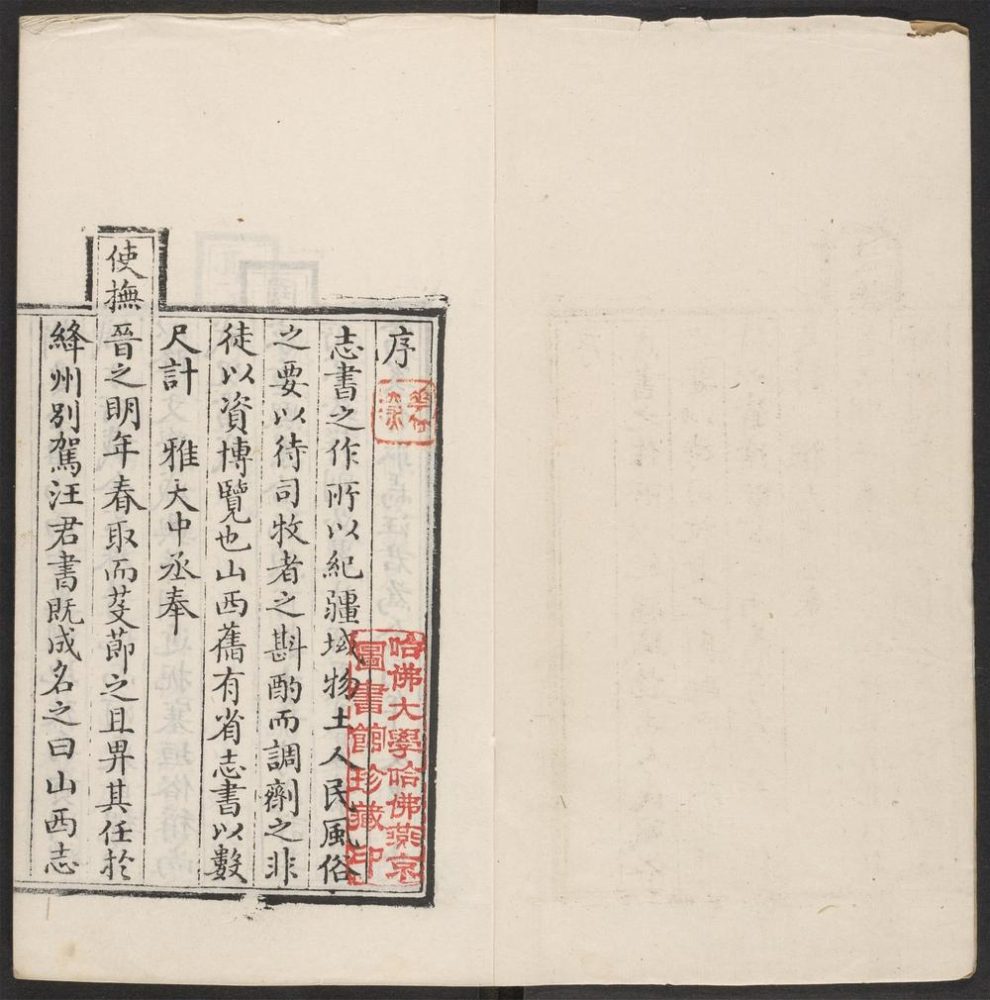 序
志書之作所以紀疆域物土人民風俗
之要以待司牧者之斟酌而調劑之非
徒以資博覽也山西舊有省志書以數
尺計　雅大中丞奉
使撫晉之明年春取而芟莭之且畀其任於
絳州別駕汪君書既成名之曰山西志
哈佛大學哈佛燕京
圖書館珍藏印